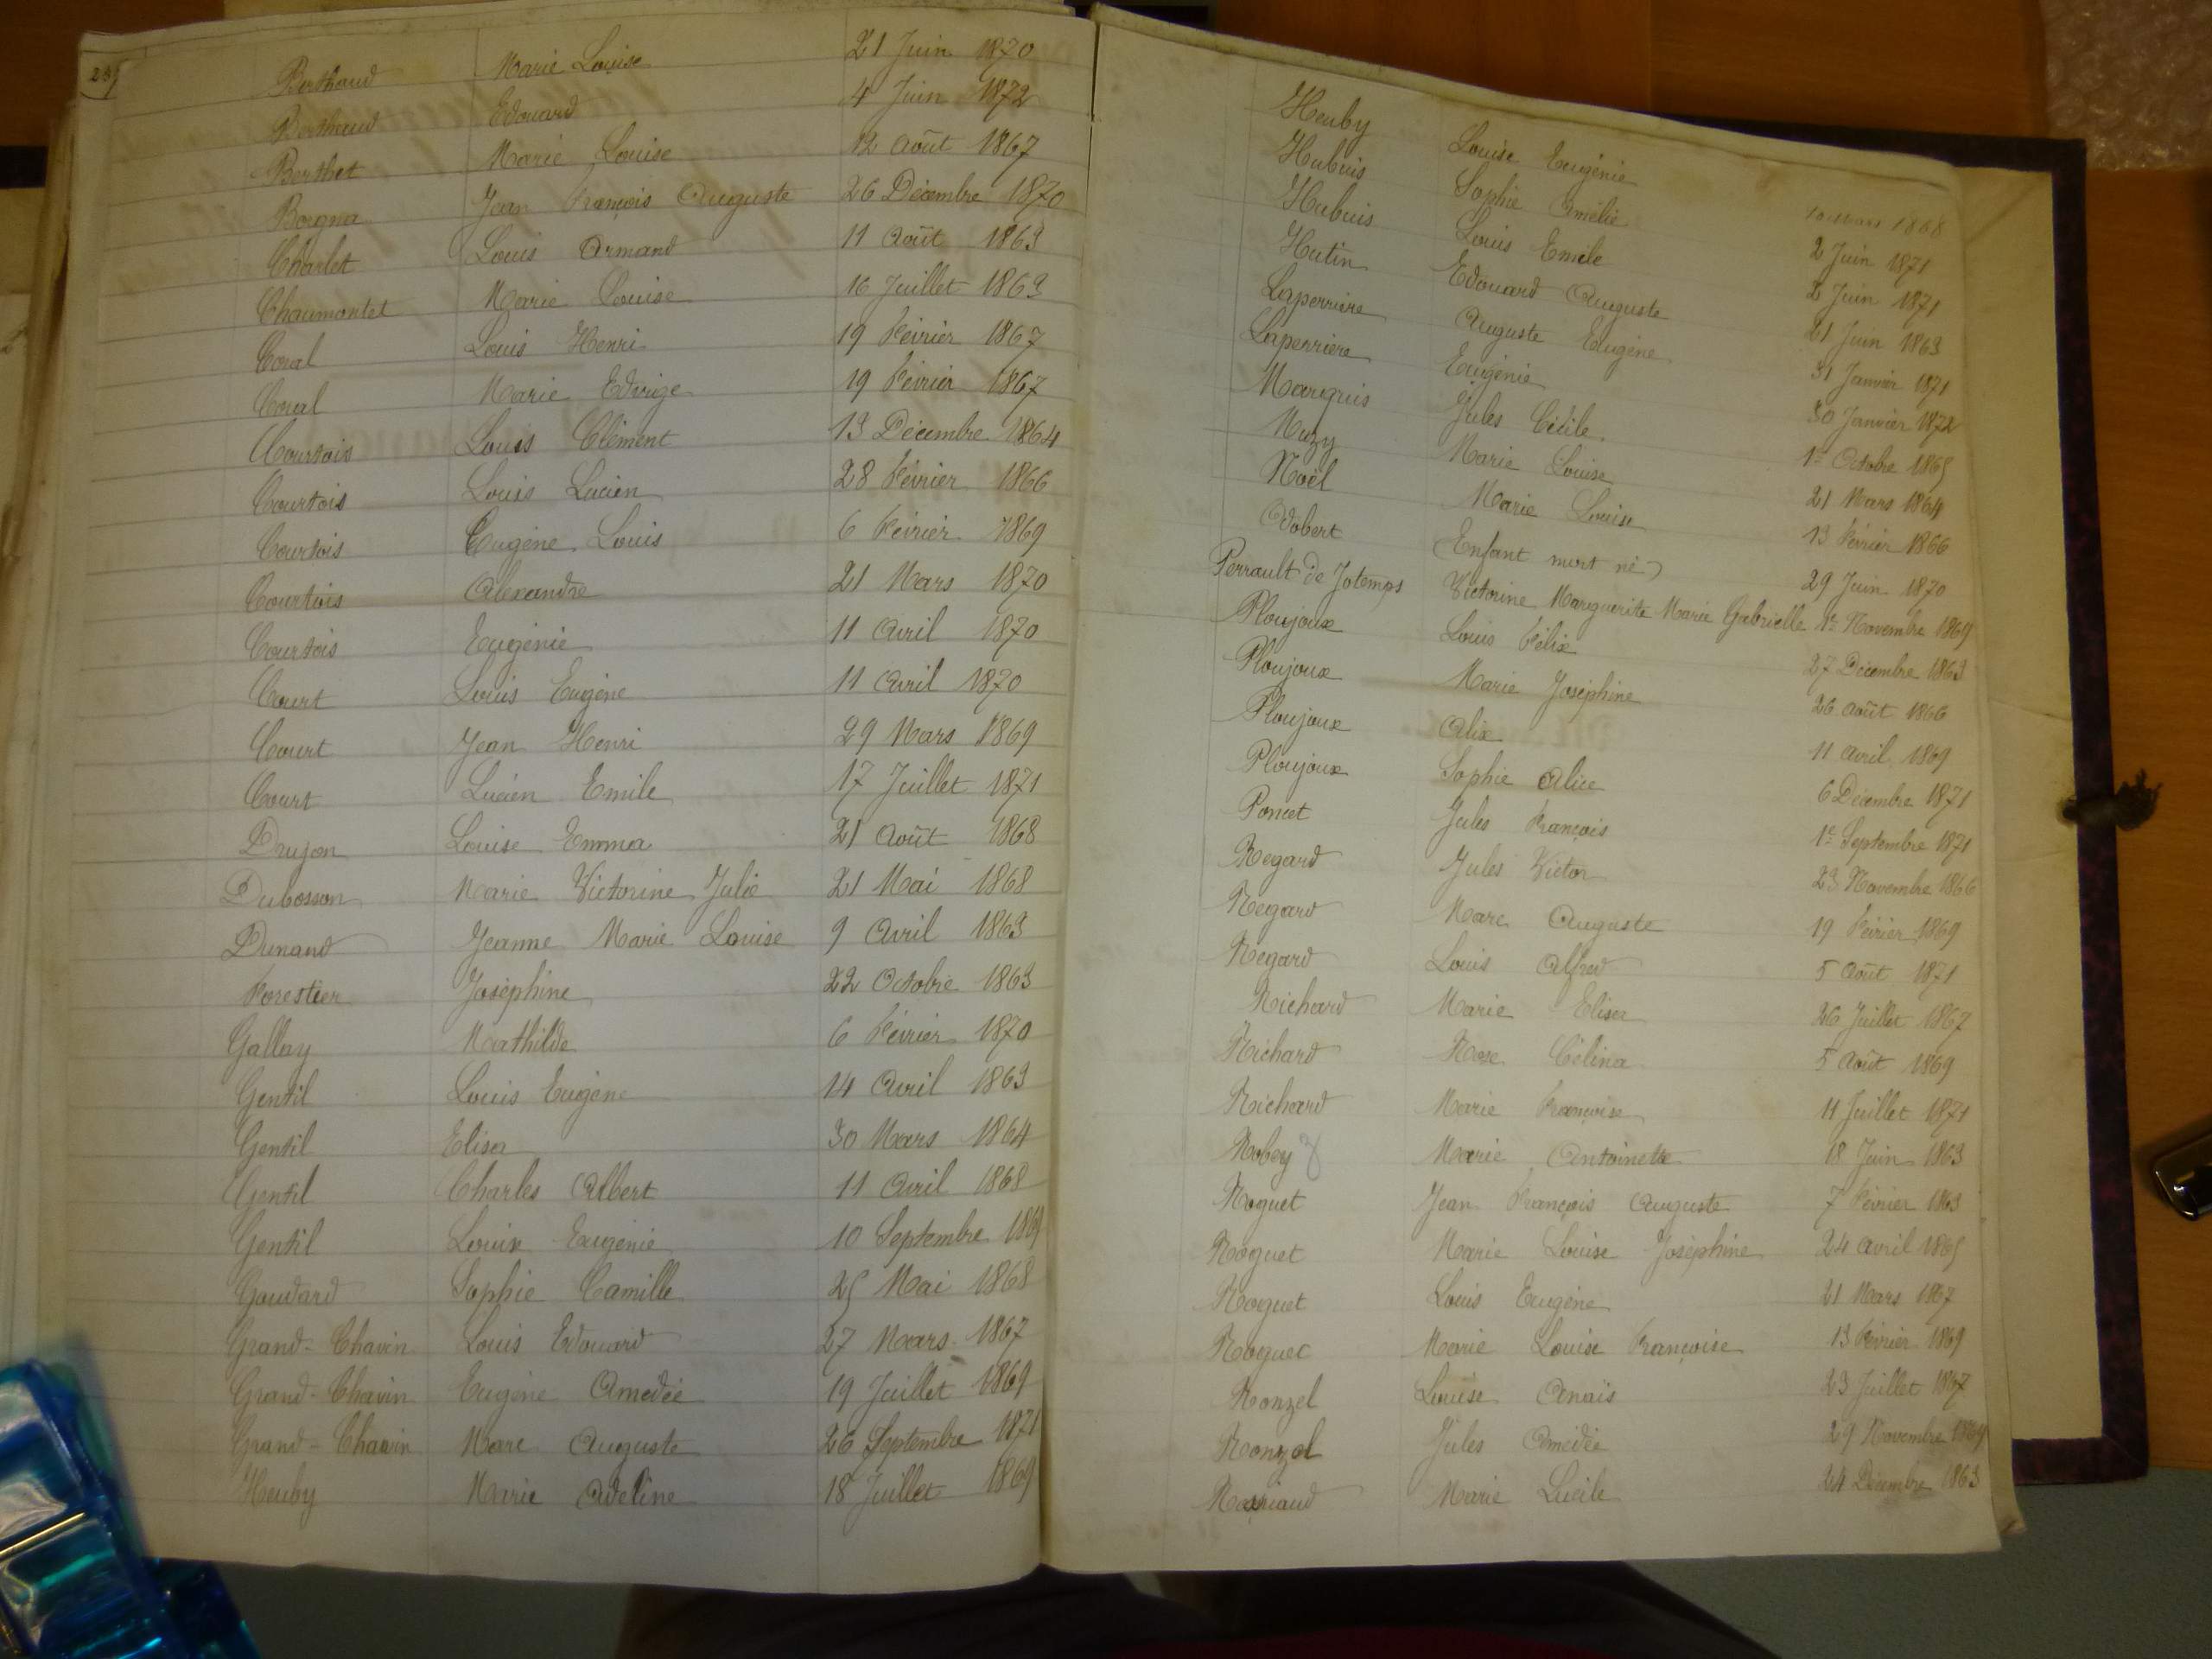 Berthoud Marie Louise 21 Juin 1870
Berthoud Edouard 4 Juin 1872
Berthet Marie Louise 12 Août 1867
Borgna Jean François Auguste 26 Décembre 1870
Charlet Louis Armand 11 Août 1863
Chaumontet Marie Louise 16 Juillet 1863
Coral Louis Henri 19 Février 1867
Coral Marie Edwige 19 Février 1867
Courtois Louis Clément 13 Décembre 1864
Courtois Louis Lucien 28 Février 1866
Courtois Eugène Louis 6 Février 1869
Courtois Alexandre 21 Mars 1870
Courtois Eugénie 11 Avril 1870
Court Louis Eugène 11 Avril 1870
Court Jean Henri 29 Mars 1869
Court Lucien Emile 17 Juillet 1871
Drujon Louise Emma 21 Août 1868
Dubosson Marie Victorine Julie 21 Mai 1868
Dunand Jeanne Marie Louise 9 Avril 1863
Forestier Joséphine 22 Octobre 1863
Gallay Mathilde 6 Février 1870
Gentil Louis Eugène 14 Avril 1863
Gentil Elisa 30 Mars 1864
Gentil Charles Albert 11 Avril 1868
Gentil Eugénie 10 Septembre
Goudard Sophie Camille 25 Mai 1868
Grand-Chavin Louis Edouard 27 Mars 1867
Grand-Chavin Eugène Amédée 19 Juillet 1869
Grand-Chavin Marc Auguste 26 Septembre 1871
Heuby Marie Adeline 18 Juillet 1869
Heuby Louise Eugénie 1868
Hubuis Sophie Amélie 2 Juin 1871
Hubuis Louis Emile 2 Juin 1871
Hutin Edouard Auguste 21 Juin 1863
Laperrière Auguste Eugène 31 Janvier 1871
Laperrière Eugénie 30 Janvier 1872
Marquis Jules Cécile 1er Octobre 1865
Muzy Marie Louise 21 Mars 1864
Noël Marie Louise 13 Février 1866
Odobert Enfant mort né 29 Juin 1870
Perrault de Jotemps Victorine Marguerite Marie Gabrielle 1er Novembre 1869
Ploujoux Louis Félix 27 Décembre 1863
Ploujoux Marie Joséphine 26 Août 1866
Ploujoux Alix 11 Avril 1869
Ploujoux Sophie Alice 6 Décembre 1871
Poncet Jules François 1er Septembre 1871
Regard Jules Victor 23 Novembre 1866
Regard Marc Auguste 19 Février 1869
Regard Louis Alfred 5 Août 1871
Richard Marie Elisa 26 Juillet 1867
Richard Rose Célina 5 Août 1869
Richard Marie Françoise 11 Juillet 1871
Robey Marie Antoinette 18 Juin 1863
Roguet Jean François Auguste 7 Février 1863
Roguet Marie Louise Joséphine 24 Avril 1865
Roguet Louis Eugène 21 Mars 1867
Roguet Marie Louise Françoise 13 Février 1869
Ronzel Louise Anaïs 23 Juillet 1867
Ronzel Jules Amédée 29 Novembre 1869
Marie Lucile 24 Décembre 1863